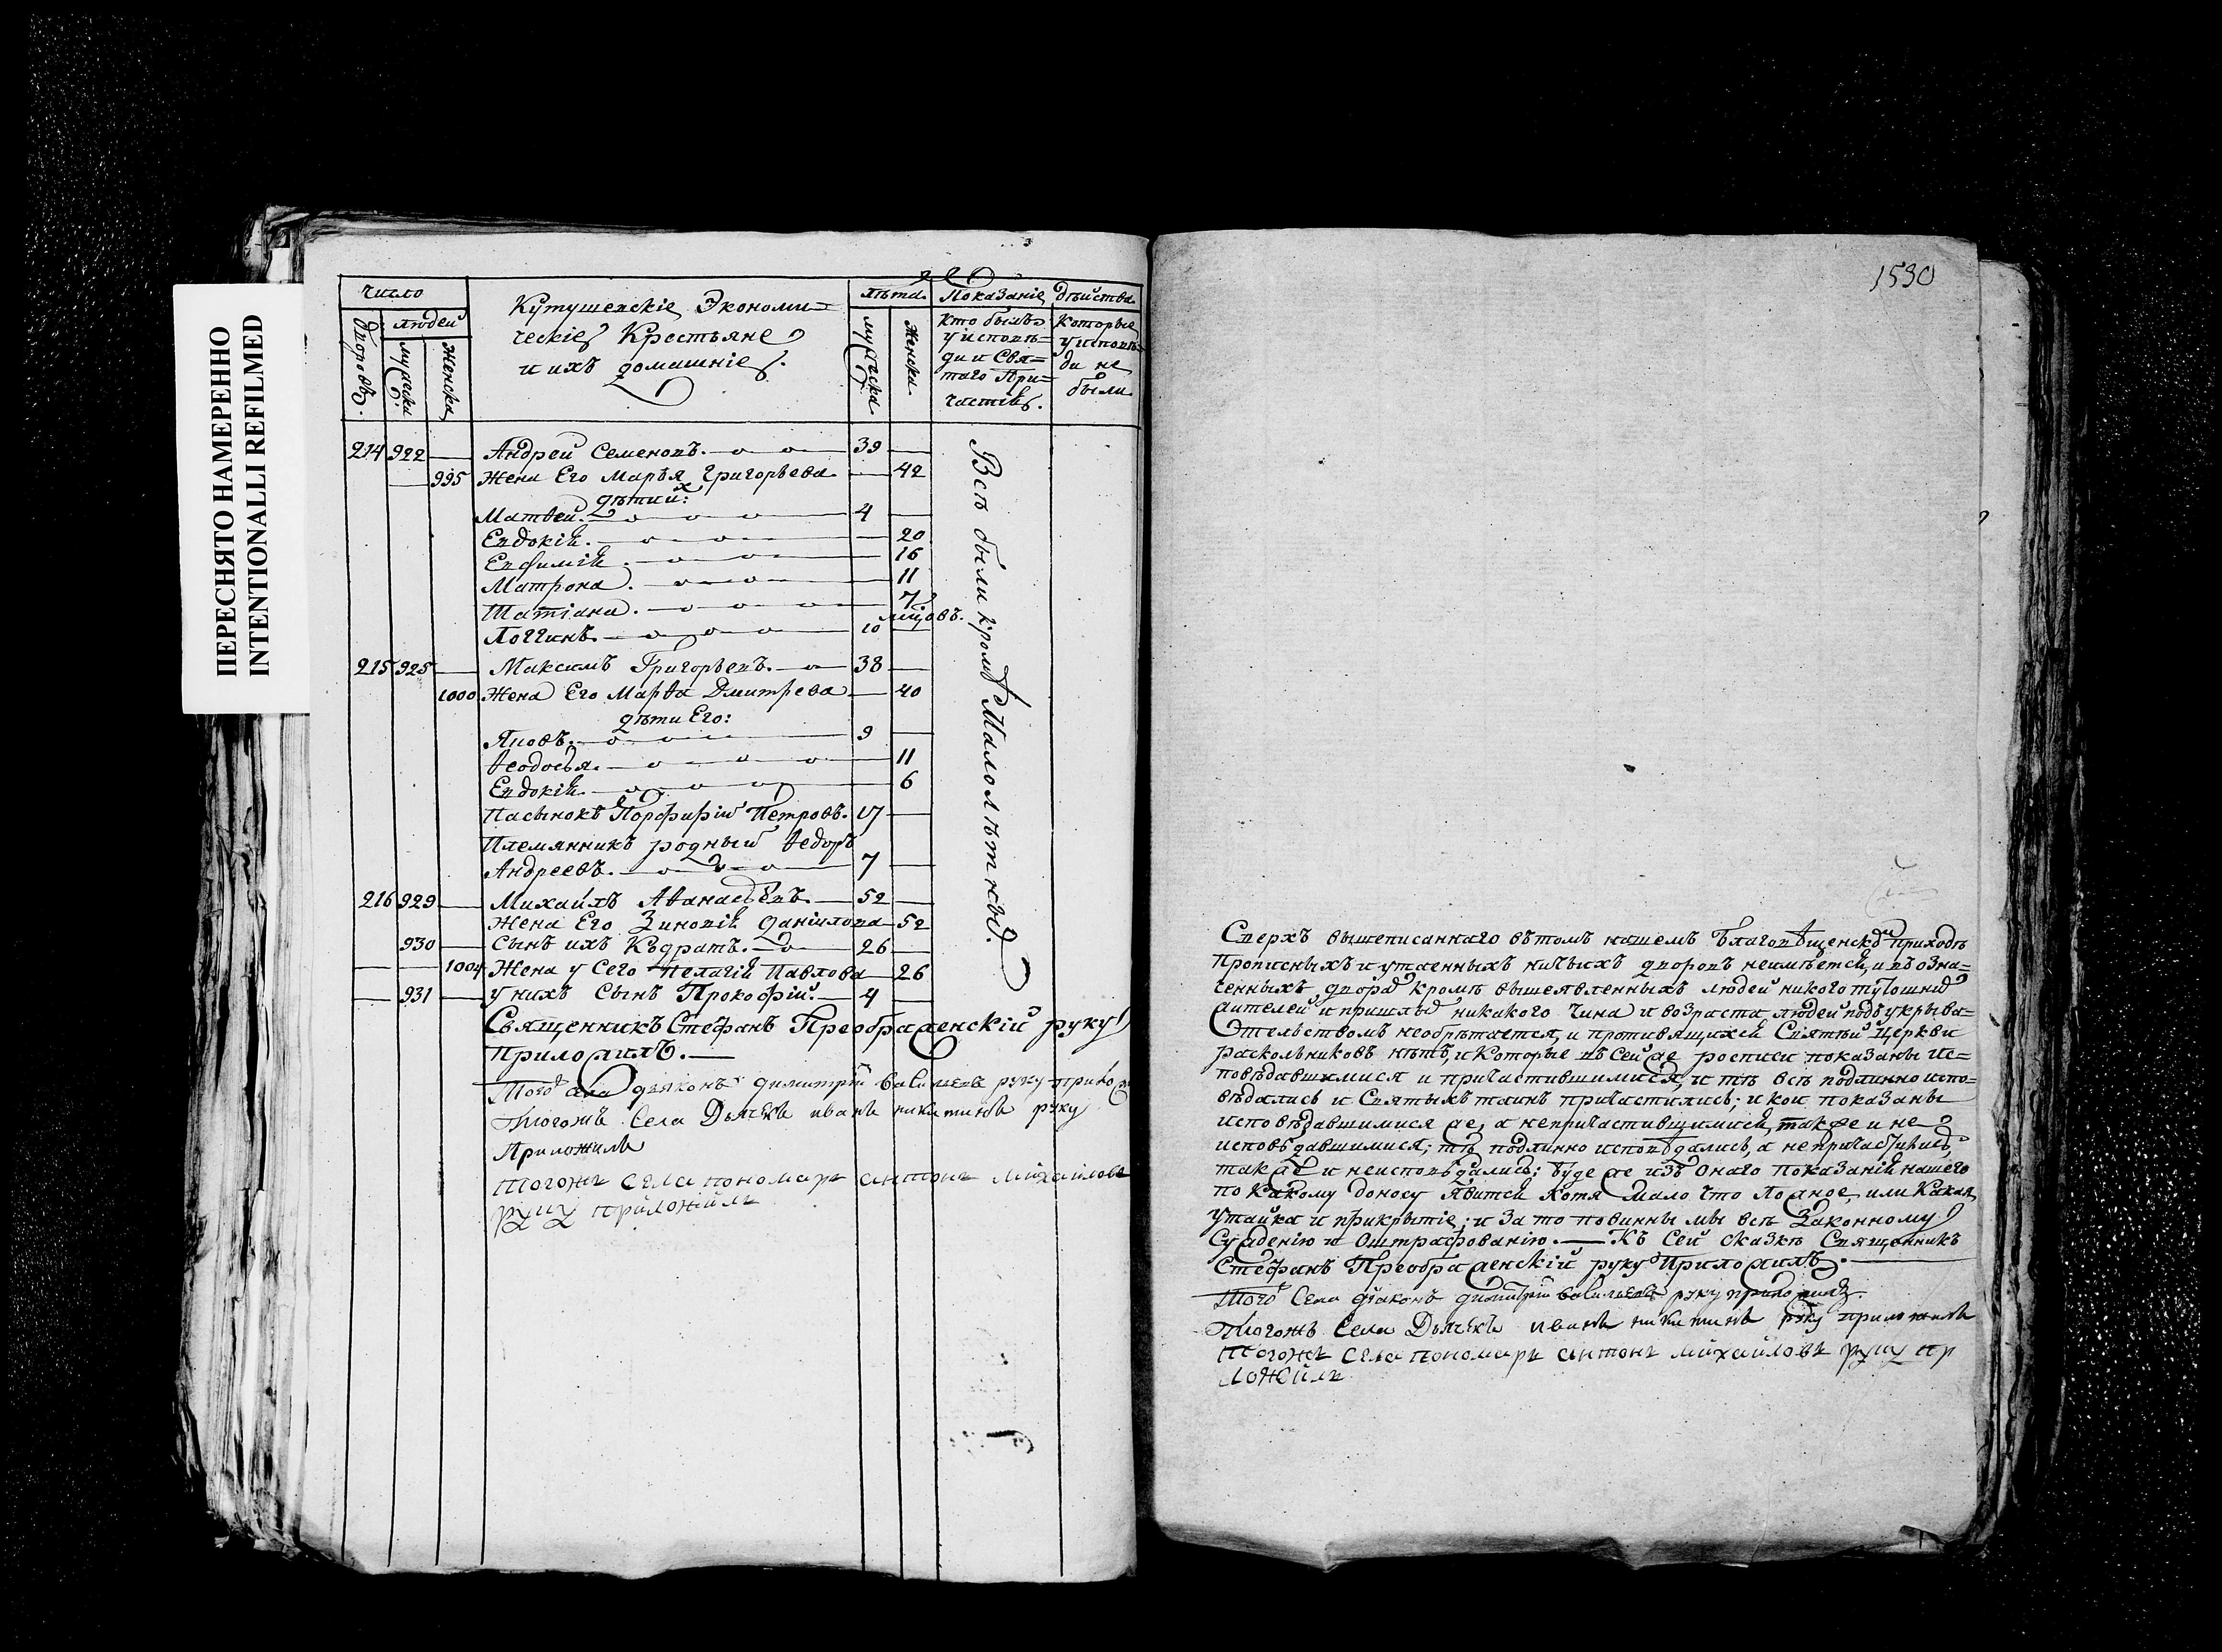 ПЕРЕСНЯТО НАМЕРЕННО
INTENTIONALLI REFILMED
число
людей
дворовъ
мужеска
женска
Кутушевскіе Экономи=
ческіе Крестьяне
и ихъ домашніе
лѣта
мужеска
женска
Показаніе дѣйства
кто былъ
у исповѣ=
ди и Свя=
таго При=
частія.
Которые
у исповѣ=
ди не
были
214 922 Андрей Семеновъ. 39
995 Жена Его Марья Григорьева 42
дѣти ихъ:
Матѳей. 4
Евдокія. 20
Евфимія. 16
Матрона. 11
Татіана. 7
мцовъ.
Логгинъ. 10
215 925 Максимъ Григорьевъ. 38
1000 Жена Его Марѳа Дмитрева 40
дѣти Его:
Яковъ. 9
Ѳеодосья. 11
Евдокія. 6
Пасынокъ Порфирій Петровъ. 17
Племянникъ родный Ѳедоръ
Андреевъ. 7
216 929 Михайлъ Аѳанасьевъ. 52
Жена Его Зиновія Данілова 52
930 Сынъ ихъ Кѡдратъ. 26
1004 Жена у Сего Пелагія Павлова 26
931 У нихъ Сынъ Прокофій. 4
Всѣ были кромѣ Малолѣтныхъ.
Священникъ Стефанъ Преображенскій руку
приложилъ.
Тогожъ села дьяконъ димитрій васильевъ руку приложи
Тогожъ Села Дьячекъ иванъ никитинъ руку
Приложилъ
Тогожъ села пономарь антонъ михайловъ
руку приложилъ
1530
Сверхъ вышеписаннаго въ томъ нашемъ Благовѣщенскомъ приходѣ
прописныхъ и утаенныхъ ничьихъ дворовъ неимѣется, и въ озна=
ченныхъ двора кромѣ вышеявленныхъ людей никого тутошнихъ
жителей и пришлыхъ никакого чина и возраста людей подъ укрыва=
тельствомъ необрѣтается, и противящихся Святѣй Церкви
раскольниковъ нѣтъ, и которые въ Сей же росписи показаны ис=
повѣдавшимися и причастившимися, и тѣ всѣ подлинно испо=
вѣдались и Святыхъ таинъ причастились; и кои показаны
исповѣдавшимися же, а непричастившимися, также и не
исповѣдавшимися; тѣ подлинно исповѣдались, а непричастились,
также и неисповѣдались; буде же изъ онаго показанія нашего
по какому доносу явится хотя мало что ложное, или какая
утайка и прикрытіе; и за то повинны мы всѣ Законному
Сужденію и Оштрафованію. Къ Сей сказкѣ Священникъ
Стефанъ Преображенскій руку Приложилъ.
Тогожъ Села дьяконъ димитрій васильевъ руку приложилъ.
Тогожъ Села Дьячекъ иванъ никитинъ руку приложилъ
Тогожъ Села пономарь антонъ михайловъ руку пр
ложилъ